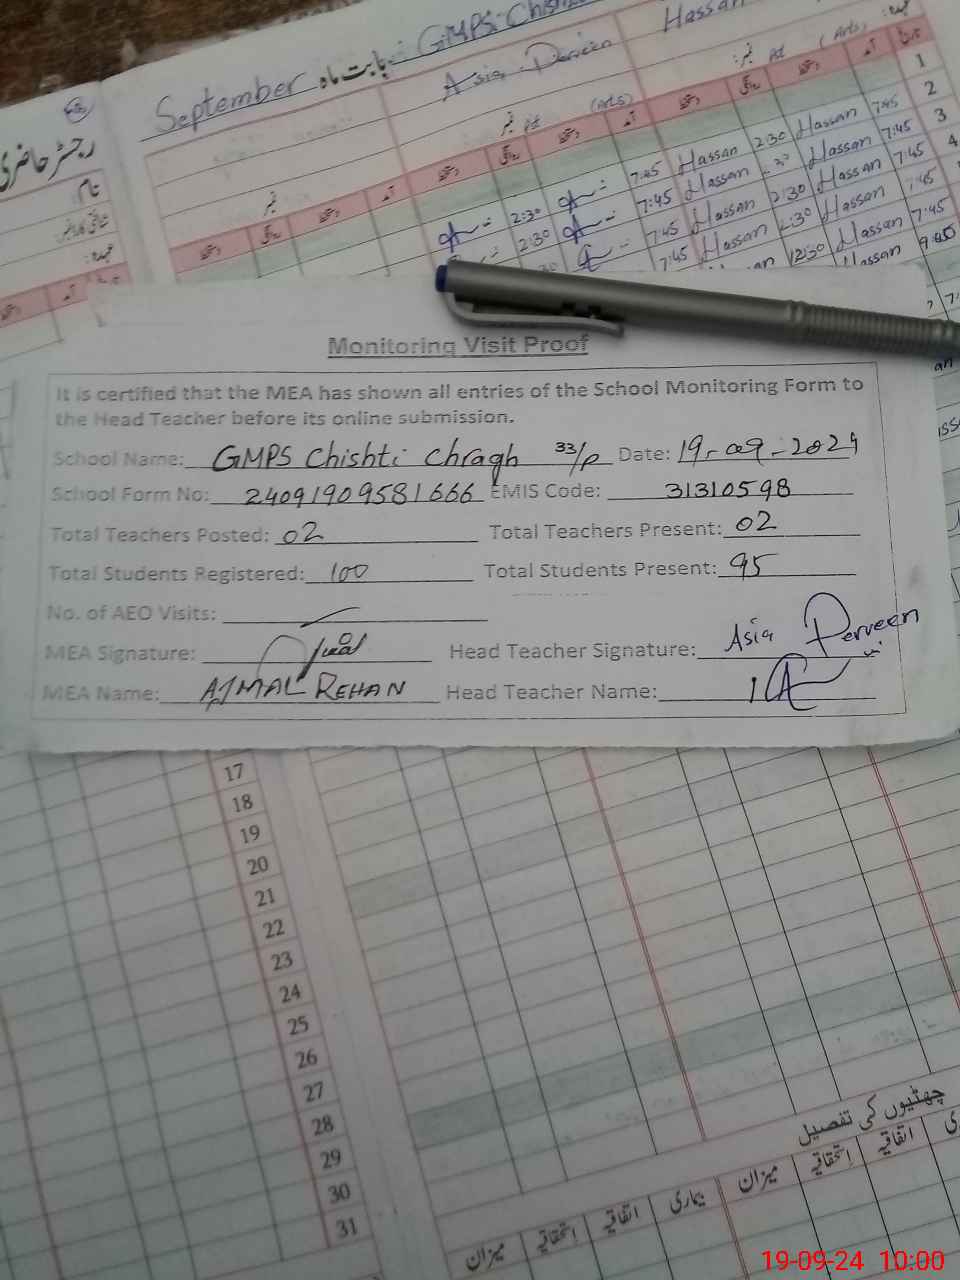 September بابت ماہ GMPS: Chishti
Asia Perveen Hassan
رجسٹر حاضری
نام:
عہدہ:
نمبر (Arts) نمبر: (Arts)
تاریخ آمد دستخط روانگی دستخط آمد دستخط روانگی دستخط
1
2
3
4
7:45 Hassan 2:30 Hassan 7:45
2:30 7:45 Hassan Hassan 7:45
2:30 7:45 Hassan 2:30 Hassan 7:45
7:45 Hassan 2:30 Hassan 7:45
12:30 Hassan 7:45
Hassan 9:45
Monitoring Visit Proof
It is certified that the MEA has shown all entries of the School Monitoring Form to
the Head Teacher before its online submission.
School Name: GMPS Chishti Chragh 33/p Date: 19-09-2024
School Form No: 24091909581666 EMIS Code: 31310598
Total Teachers Posted: 02 Total Teachers Present: 02
Total Students Registered: 100 Total Students Present: 95
No. of AEO Visits:
MEA Signature: Head Teacher Signature: Asia Perveen
MEA Name: AJMAL REHAN Head Teacher Name:
17
18
19
20
21
22
23
24
25
26
27
28
29
30
31
چھٹیوں کی تفصیل
اتفاقیہ استحقاقیہ میزان بیماری اتفاقیہ استحقاقیہ میزان
19-09-24 10:00